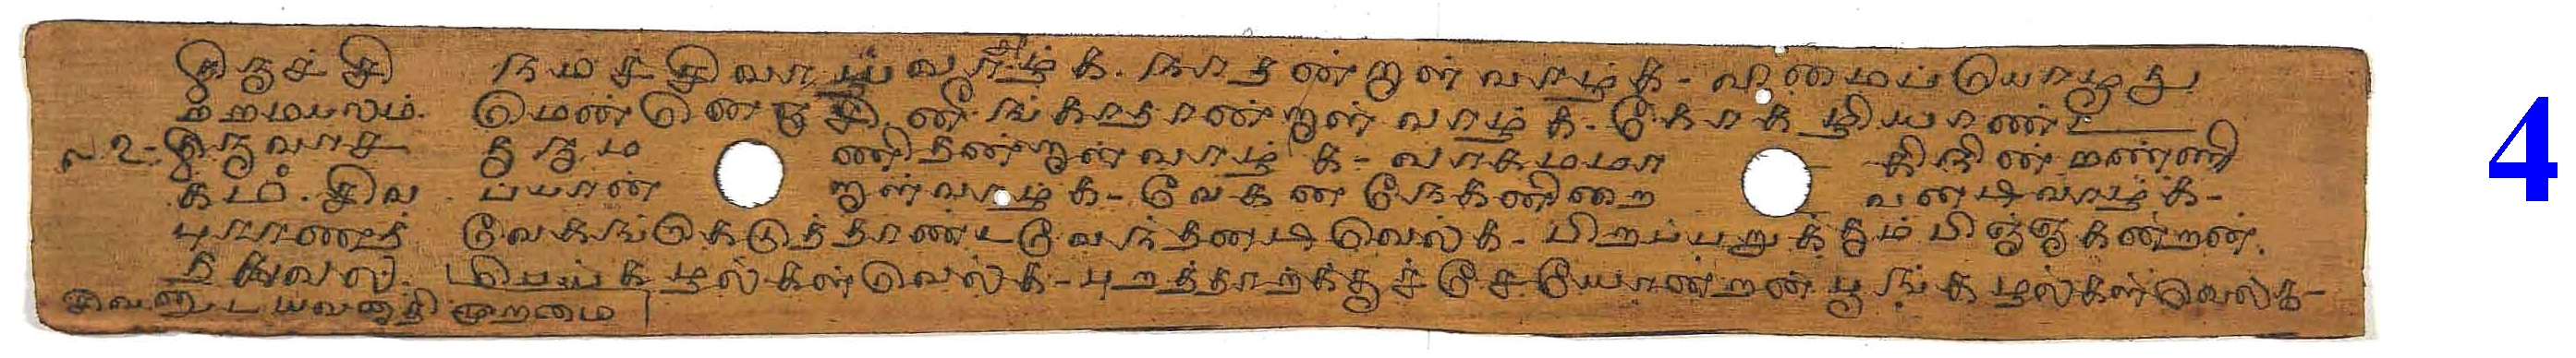 திருச்சி நமச்சிவாயவாஅழ்க. நாதன்றாள் வாழ்க - யிமைப்பொழுது
ற்றமபலம். மென்னெஞ்சி னீங்காதான்றாள் வாழ்க. கோகழியாண்ட
௳௨- திருவாச குரும ணிதன்றாள் வாழ்க - வாகமமா கிநின் றண்ணி
கம். சிவ ப்யான் றாள்வாழ்க - வேகனநேகனிறை வனடிவாழ்க -
புராணத் வேகங்கெடுத்தாண்டவேந்தனடிவெல்க - பிறப்பறுக்கும் பிஞ்ஞகன்றன்
தகவல் பெய்கழல்கள்வெல்க - புறத்தார்க்குச்சேயோன்றன் பூங்கழல்கள்வெல்க -
சிவனுடயவனாதி முறமை
4